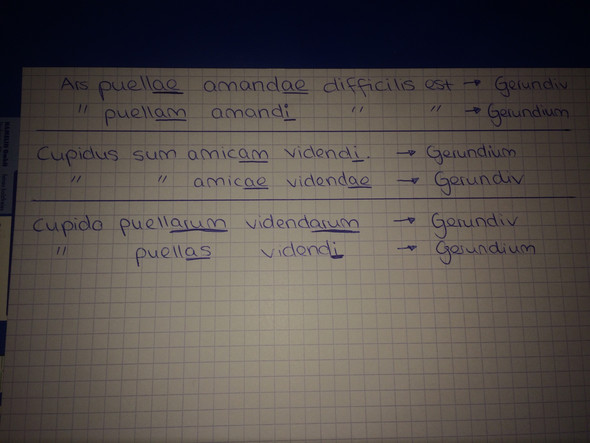 Ars puellae amandae difficilis est → Gerundiv
" puellam amandi " " → Gerundium
Cupidus sum amicam videndi. → Gerundium
" " amicae videndae → Gerundiv
Cupido puellarum videndarum → Gerundiv
" puellas videndi → Gerundium